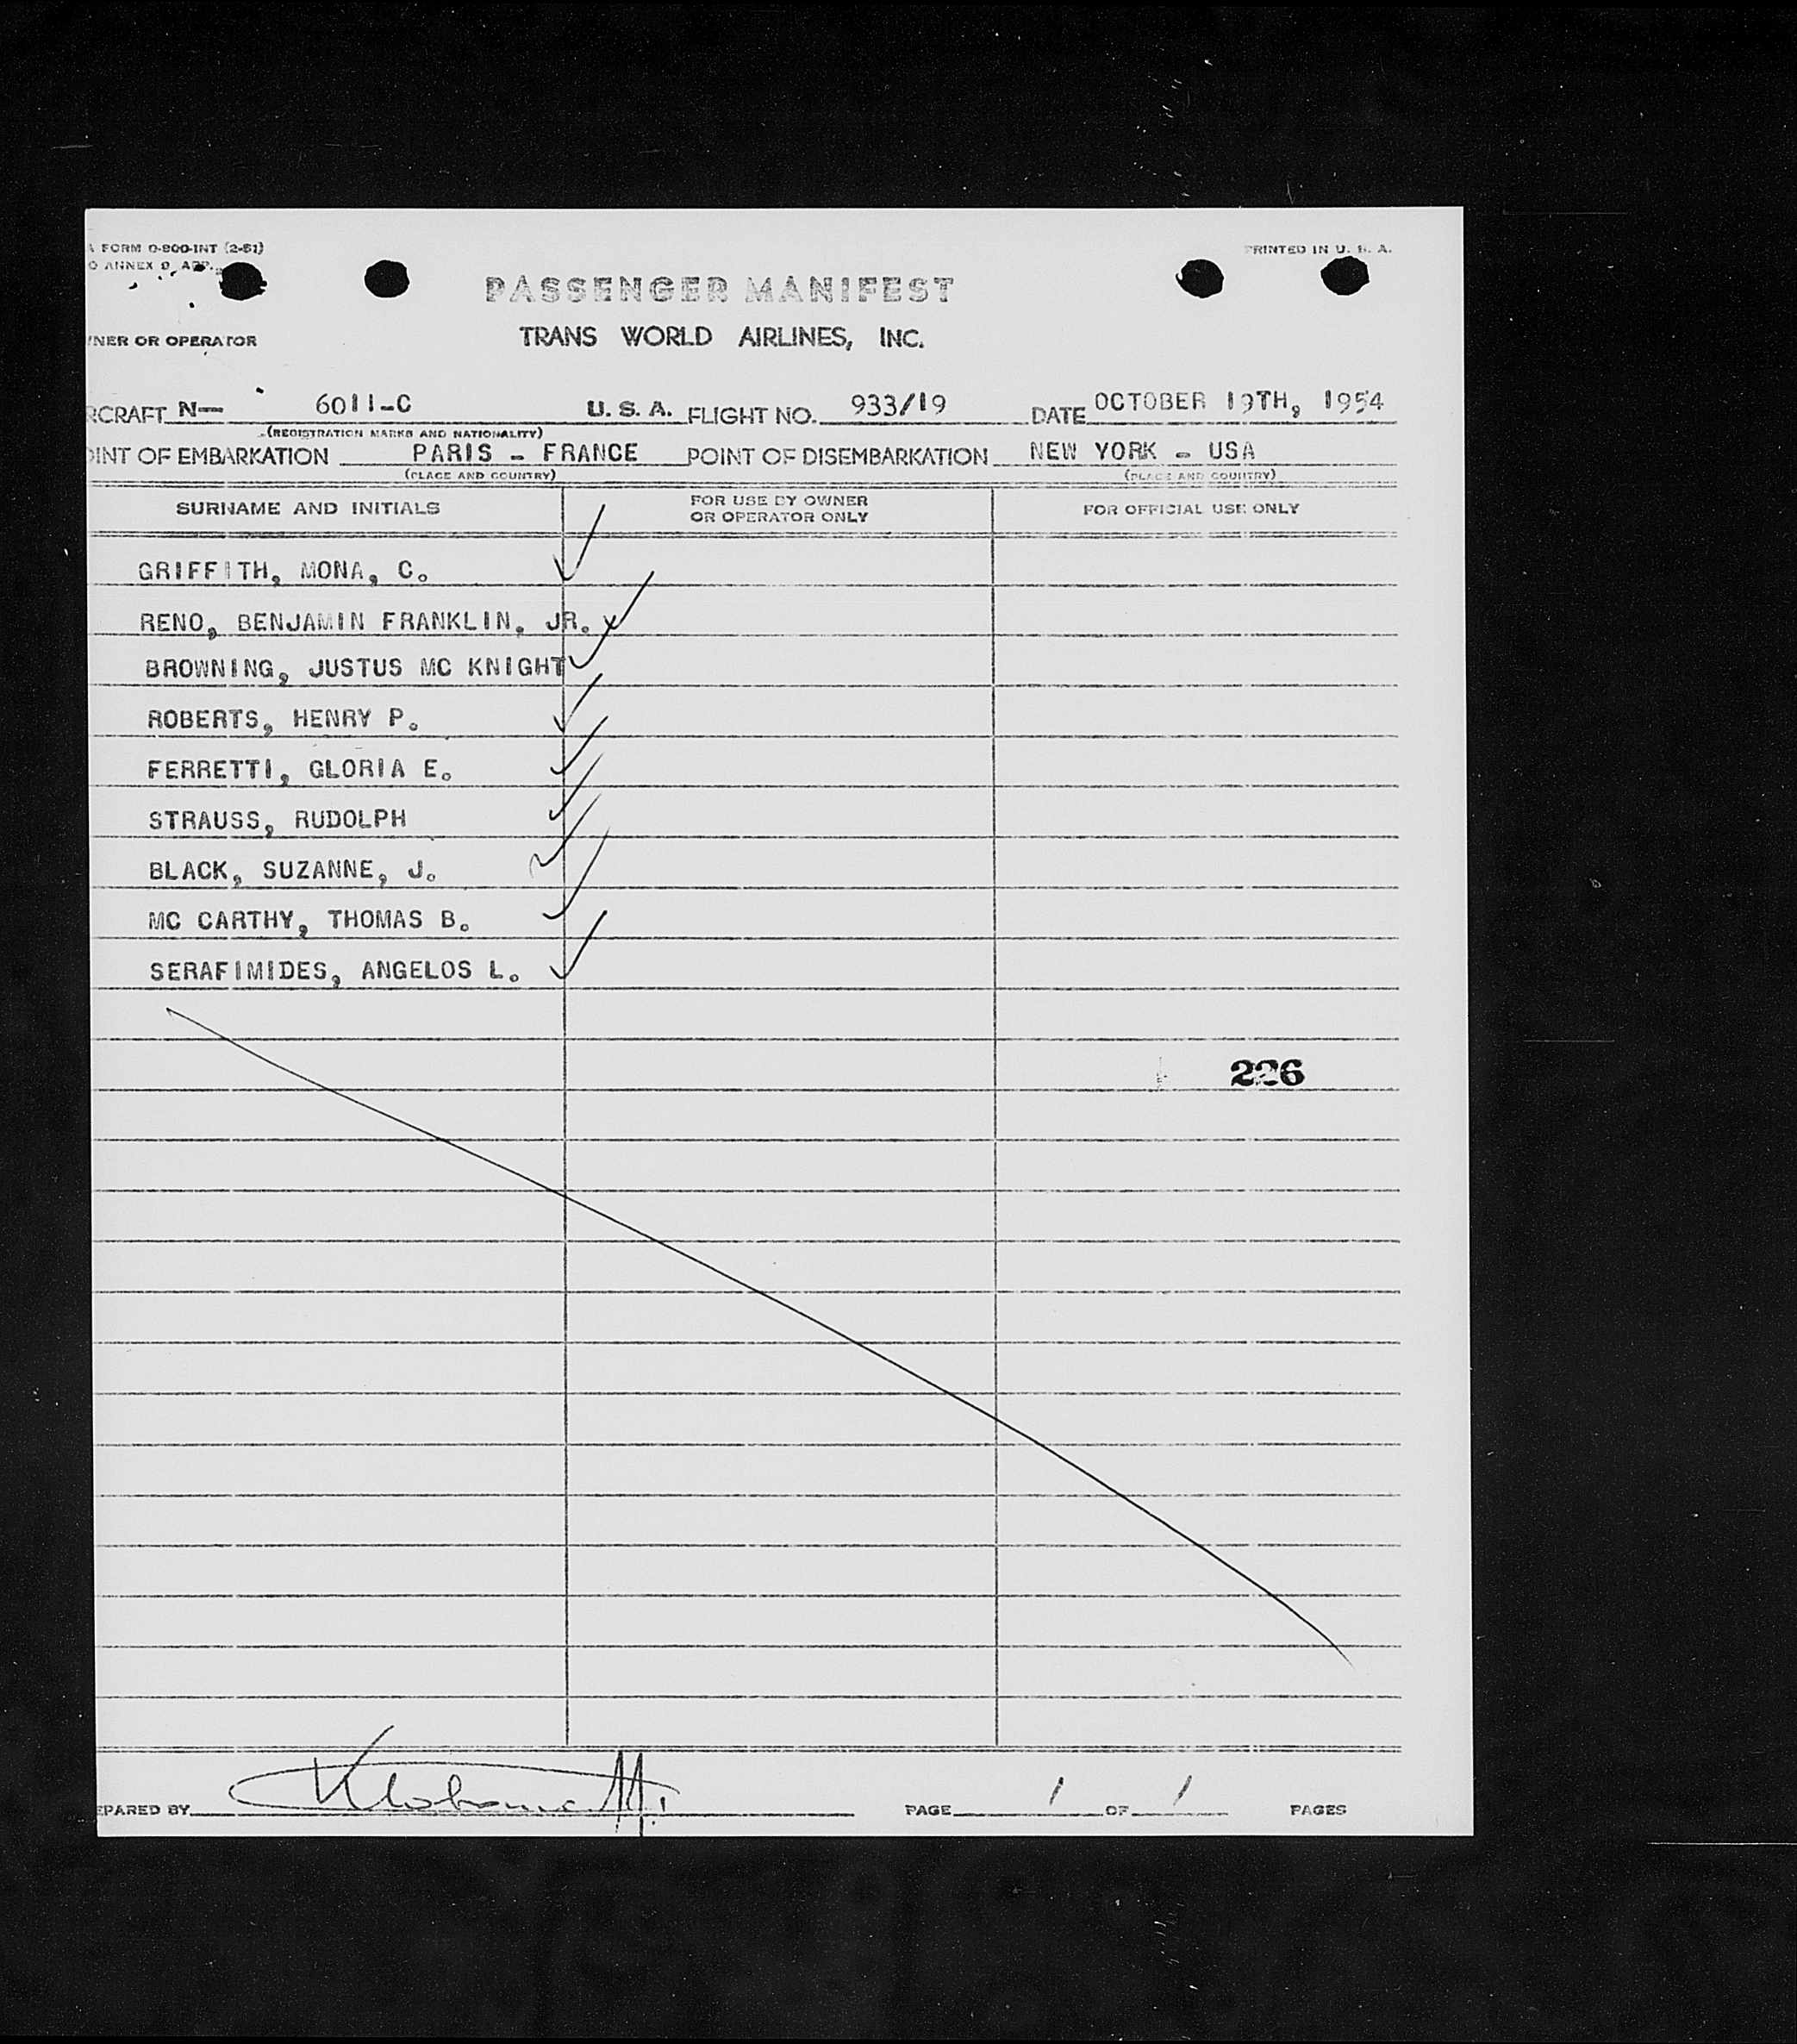 FORM O-800-INT (2-51)
PRINTED IN U. S. A.
O ANNEX 9, APP.
PASSENGER MANIFEST
NER OR OPERATOR
TRANS WORLD AIRLINES, INC.
RCRAFT N— 6011-C U. S. A. FLIGHT NO. 933/19 DATE OCTOBER 19TH, 1954
(REGISTRATION MARKS AND NATIONALITY)
OINT OF EMBARKATION PARIS - FRANCE POINT OF DISEMBARKATION NEW YORK - USA
(PLACE AND COUNTRY) (PLACE AND COUNTRY)
SURNAME AND INITIALS FOR USE BY OWNER OR OPERATOR ONLY FOR OFFICIAL USE ONLY
GRIFFITH, MONA, C.
RENO, BENJAMIN FRANKLIN, JR.
BROWNING, JUSTUS MC KNIGHT
ROBERTS, HENRY P.
FERRETTI, GLORIA E.
STRAUSS, RUDOLPH
BLACK, SUZANNE, J.
MC CARTHY, THOMAS B.
SERAFIMIDES, ANGELOS L.
226
EPARED BY PAGE 1 OF 1 PAGES